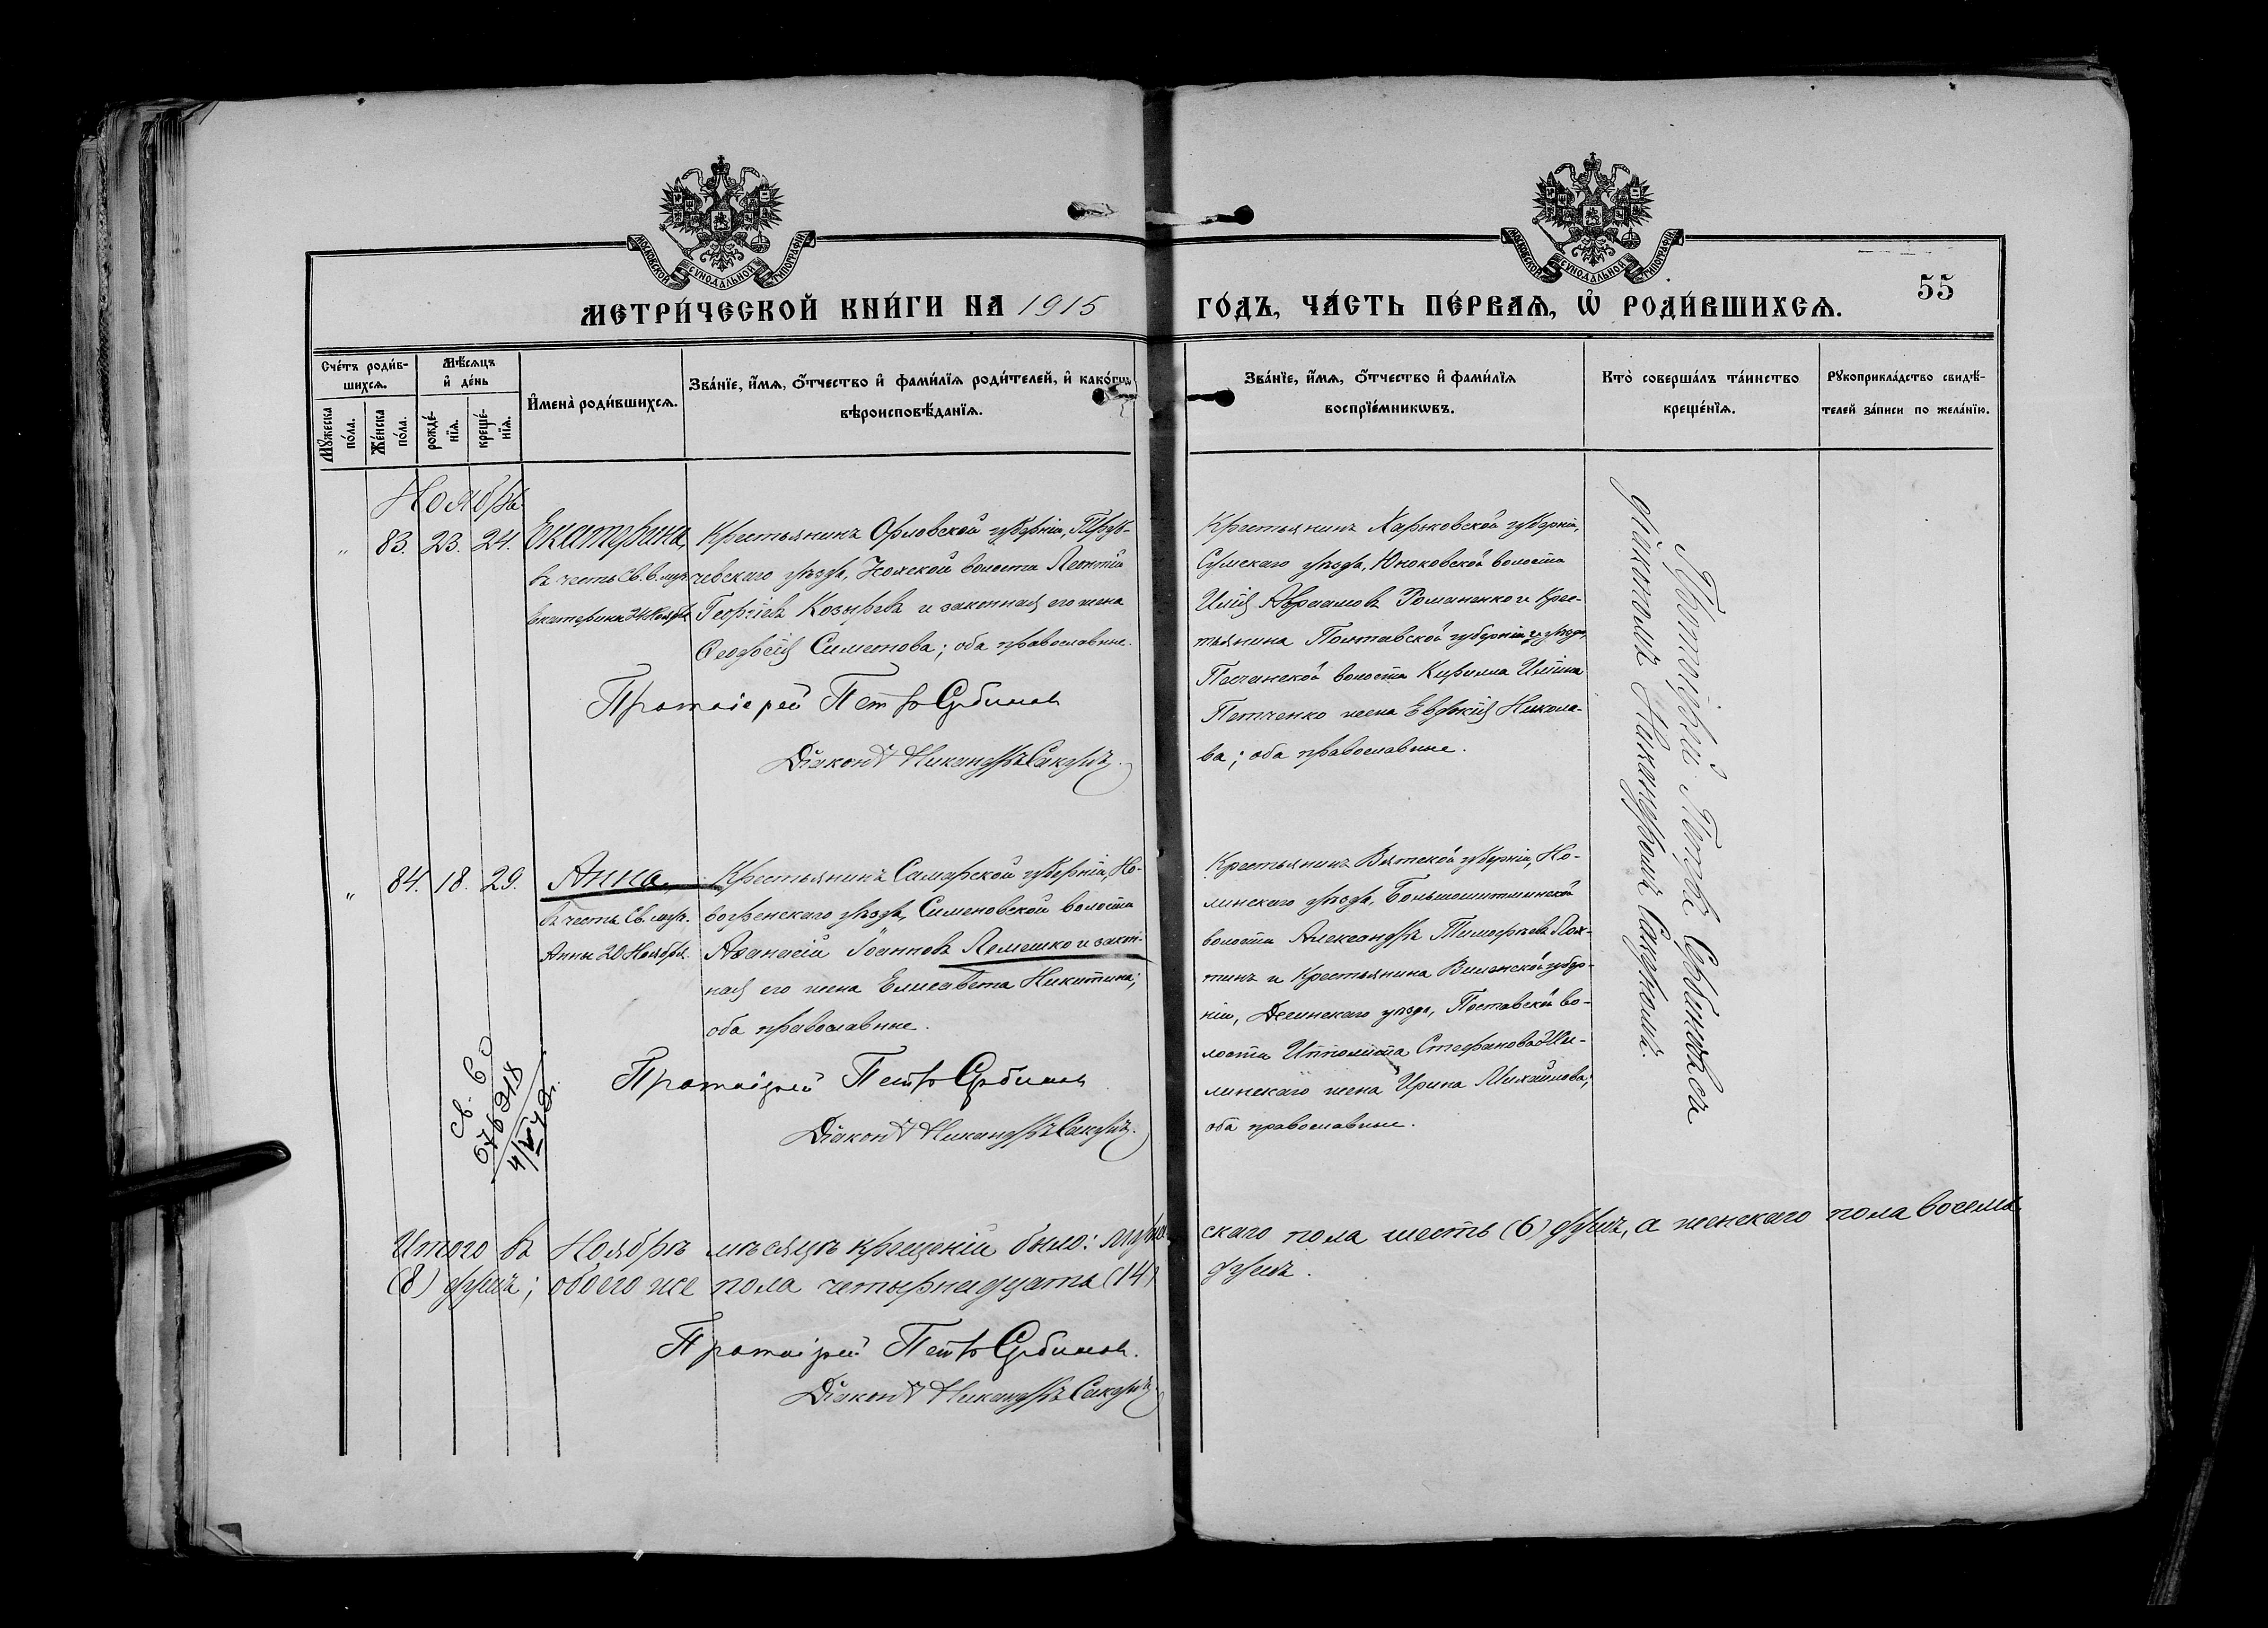 МОСКОВСКОЙ СѴНОДАЛЬНОЙ ТИПОГРАФІИ
МОСКОВСКОЙ СѴНОДАЛЬНОЙ ТИПОГРАФІИ
МЕТРИ́ЧЕСКОЙ КНИ́ГИ НА 1915
ГО́ДЪ, ЧА́СТЬ ПЕ́РВАЯ, Ѡ РОДИ́ВШИХСЯ.
55
Сче́тъ роди́в-
шихся.
Мѣ́сяцъ
и҆ де́нь
Мꙋ́жеска
по́ла.
Же́нска
по́ла.
рожде́-
нїѧ.
креще́-
нїѧ.
И҆мена̀ роди́вшихся.
Зва́нїе, и҆́мѧ, ѻ҆́тчество и҆ фами́лїѧ роди́телей, и҆ како́гѡ
вѣроисповѣ́данїѧ.
Зва́нїе, и҆́мѧ, ѻ҆́тчество и҆ фами́лїѧ
воспрїе́мникѡвъ.
Кто̀ соверша́лъ та́инство
креще́нїѧ.
Рꙋкоприкла́дство свидѣ́-
телей за́писи по жела́нїю.
Ноябрь
" 83. 23. 24. Екатерина,
въ честь Св. в. муч.
Екатерины 24 Ноября
Крестьянинъ Орловской губерніи, Труб-
чевскаго уѣзда, волости Леонтій
Георгіевъ Козыревъ и законная его жена
Ѳеодосія Симеонова; оба православные.
Протоіерей Петръ Сербиновъ
Діаконъ Никандръ Сакдритъ.
Крестьянинъ Харьковской губерніи,
Сумскаго уѣзда, Юноковской волости
Илія Авраамовъ Романенко и крес-
тьянина Полтавской губерніи и уѣзда,
волости Кирилла Иліина
Петченко жена Евдокія Никола-
ва; оба православные.
" 84. 18. 29. Анна,
въ честь Св. муч.
Анны 20 Ноября.
Крестьянинъ Самарской губерніи, Но-
воузенскаго уѣзда, Семеновской волости
Аѳанасій Іоанновъ Лемешко и закон-
ная его жена Елисавета Никитина;
оба православные.
Протоіерей Петръ Сербиновъ
Діаконъ Никандръ Сакдритъ.
Крестьянинъ Вятской губерніи, Но-
линскаго уѣзда,
волости Александръ Тимофеевъ
и крестьянина Виленской губер-
ніи, Дисненскаго уѣзда, Поставской во-
лости Ипполита Стефанова
жена Ирина Михайлова;
оба православные.
Протоіерей Петръ Сербиновъ съ
діакономъ Никандромъ
св. ѲО
Итого въ Ноябрѣ мѣсяцѣ крещеній было: муже-
скаго пола шесть (6) душъ, а женскаго пола восемь
(8) душъ; обоего же пола четырнадцать (14)
душъ.
Протоіерей Петръ Сербиновъ.
Діаконъ Никандръ Сакдритъ